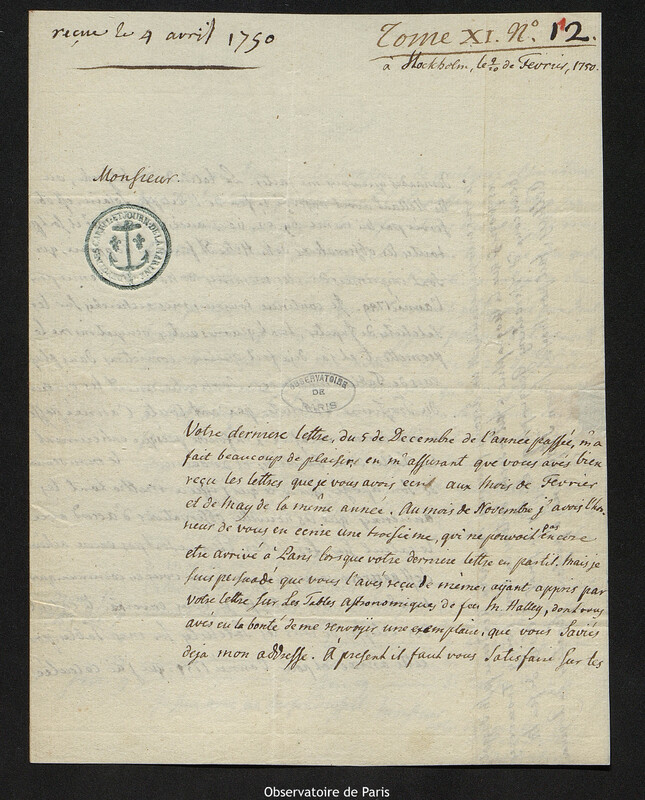 reçue le 4 avril 1750
Tome XI. N.º 12.
à Stockholm, le 9/20 de Fevrier, 1750.
Monsieur.
OBSERVATOIRE
DE
PARIS
Votre derniere lettre, du 5 de Decembre de l'année passée, m'a
fait beaucoup de plaisirs en m'assurant que vous avés bien
reçu les lettres que je vous avois ecrit aux mois de Fevrier
et de May de la même année. Au mois de Novembre j'avois l'hon-
neur de vous en ecrire une troisieme, qui ne pouvoit pas encore
etre arrivé à Paris lorsque votre derniere lettre en partit. Mais je
suis persuadé que vous l'avés reçu de même, aïant appris par
votre lettre sur Les Tables Astronomiques de feu M. Halley, dont vous
avés eu la bonté de me renvoyïr une exemplaire, que vous saviés
deja mon addresse. À present il faut vous satisfaire sur les
Observatoire de Paris